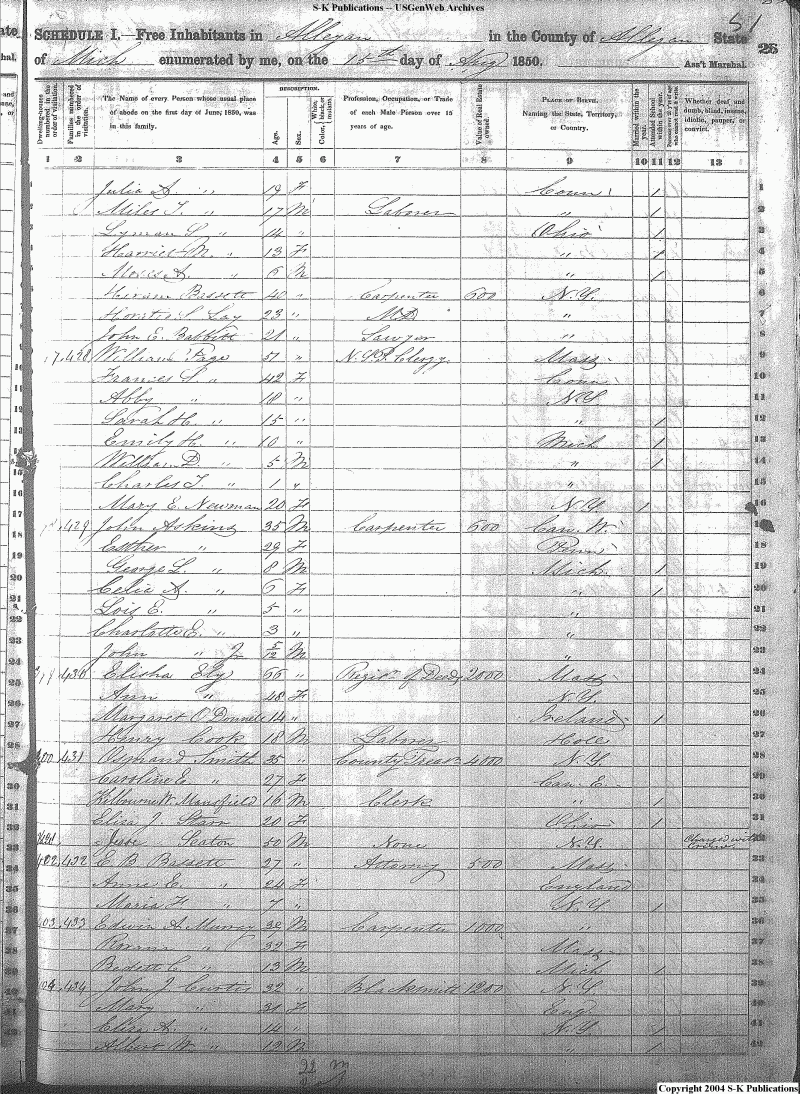 S-K Publications -- USGenWeb Archives
51
SCHEDULE I.—Free Inhabitants in Allegan in the County of Allegan State
of Mich enumerated by me, on the 15th day of Aug 1850. Ass't Marshal.
Dwelling-houses numbered in the order of visitation.
Families numbered in the order of visitation.
The Name of every Person whose usual place of abode on the first day of June, 1850, was in this family.
DESCRIPTION.
Age.
Sex.
Color,
Profession, Occupation, or Trade of each Male Person over 15 years of age.
Value of Real Estate owned.
PLACE OF BIRTH. Naming the State, Territory, or Country.
Married within the year.
Attended School within the year.
Whether deaf and dumb, blind, insane, idiotic, pauper, or convict.
1 2 3 4 5 6 7 8 9 10 11 12 13
1 Julia A. " 19 F Conn 1 1
2 Miles T. " 17 M Laborer " 1 2
3 Lyman " 14 " Ohio 1 3
4 Harriet M. " 13 F " 1 4
5 Moses A. " 6 M " 1 5
6 Hiram Bassett 40 " Carpenter 600 N.Y. 6
7 Horatio Lay 23 " M D " 7
8 John E. Babbitt 21 " Lawyer " 8
9 428 William Page 51 " Clergy Mass 9
10 Frances " 42 F Conn 10
11 Abby " 18 " N Y 11
12 Sarah H. " 15 " " 1 12
13 Emily H. " 10 " Mich 1 13
14 William D " 5 M " 1 14
15 Charles T " 1 " " 15
16 Mary E. Newman 20 F N.Y. 1 16
17 429 John Askins 35 M Carpenter 500 Can. W. 17
18 Esther " 29 F Penn 18
19 George L. " 8 M Mich. 1 19
20 Celia A. " 6 F " 1 20
21 Lois E. " 5 " " 21
22 Charlotte E. " 3 " " 22
23 John " 5/12 M " 23
24 430 Elisha Ely 66 " Regist. of Deeds 2000 Mass 24
25 Ann " 48 F N.Y. 25
26 Margaret O'Donnell 14 " Ireland 1 26
27 Henry Cook 18 M Laborer 27
28 400 431 Smith 35 " County Treas 4000 N.Y 28
29 Caroline E. " 27 F Can. E. 29
30 Mansfield 16 M Clerk " 1 30
31 Eliza J. Starr 20 F Ohio 1 31
32 Jesse Seaton 50 M None N.Y. Charged with crime 32
33 402 432 E B Bassett 27 " Attorney 500 Mass 33
34 Anne E. " 24 F England 34
35 Maria F " 7 " N.Y 1 35
36 403 433 Edwin A. Murray 30 M Carpenter 1000 " 36
37 " 32 F Mass 37
38 C " 13 M Mich 1 38
39 404 434 John J. Curtis 32 " Blacksmith 1200 N.Y 39
40 Mary " 31 F Eng 40
41 Eliza A. " 14 " N.Y 1 41
42 Albert W. " 12 M " 1 42
22 m
Copyright 2004 S-K Publications